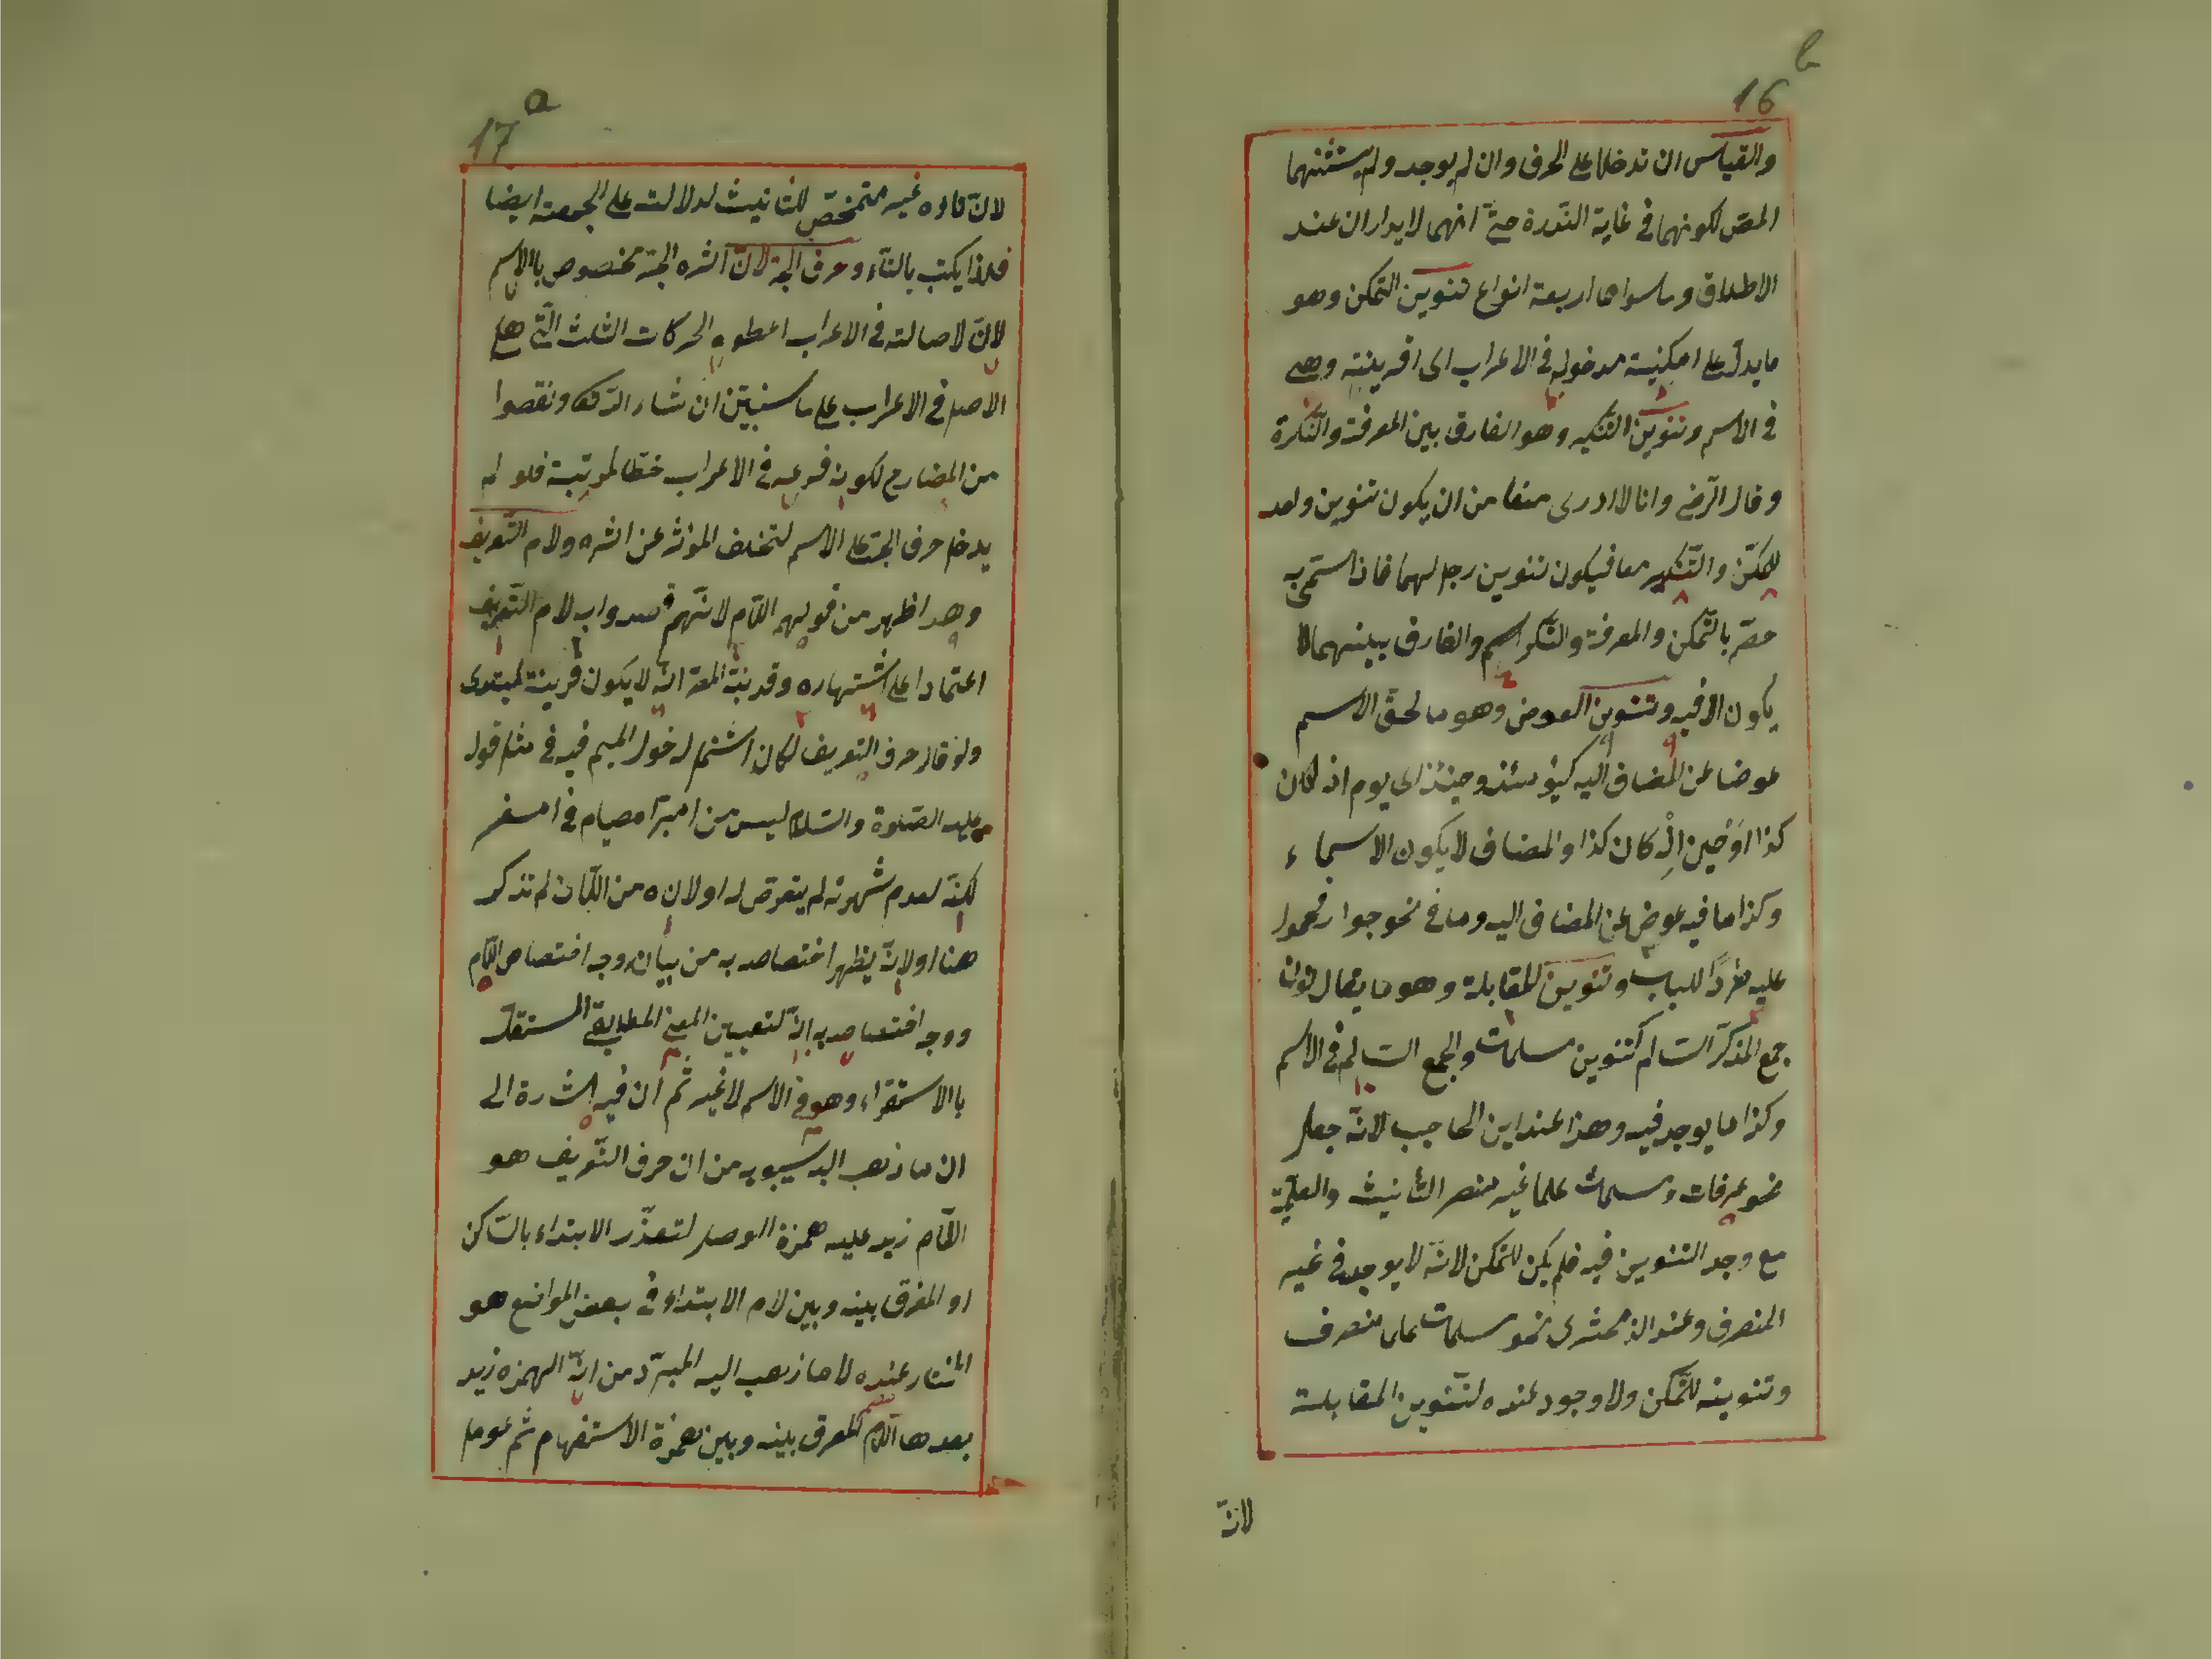 16 b
والقياس ان تدخلا على الحرف وان لم يوجد ولم يستثنهما
المص لكونهما في غاية الندرة حتى انهما لا يرادان عند
الاطلاق وما سواهما اربعة انواع تنوين التمكن وهو
ما يدل على امكنية مدخوله في الاعراب اى اقرينته وهى
في الاسم وتنوين التنكير وهو الفارق بين المعرفة والنكرة
وقال الرضى وانا لا ادرى منعا من ان يكون تنوين واحد
للتمكن والتنكير معا فيكون تنوين رجل لهما فاذا استمى به
بالتمكن والمعرفة والنكر اسم والفارق بينهما لا
يكون الا فيه وتنوين العوض وهو ما لحق الاسم
عوضا عن المضاف اليه كيومئذ وحينئذ اى يوم اذ كان
كذا او حين اذ كان كذا والمضاف لا يكون الا سماء
وكذا ما فيه عوض عن المضاف اليه وما في نحو جوار فحمول
عليه طردًا للباب وتنوين المقابلة وهو ما يقابل نون
جمع المذكر السالم كتنوين مسلمات والجمع السالم في الاسم
وكذا ما يوجد فيه وهذا عند ابن الحاجب لانه جعل
نحو عرفات ومسلمات علما غير منصر التأنيث والعلمية
مع وجد التنوين فيه فلم يكن للتمكن لانه لا يوجد في غير
المنصرف وعند الزمخشرى نحو مسلمات علما منصرف
وتنوينه للتمكن ولا وجود عنده لتنوين المقابلة
لانّ
17 a
لانّ تاءه غير متمخض للتأنيث لدلالته على الجمعية ايضا
فلذا يكتب بالتاء وحرف الجر لانّ اثره الجر مخصوص بالاسم
لانّ لاصالته في الاعراب اعطوه الحركات الثلث التى هى
الاصل في الاعراب على ما سنبين ان شاء الله تعالى ونقصوا
من المضارع لكونه فرعيه في الاعراب حطا لمرتبته فلو لم
يدخل حرف الجر على الاسم لتخلف المؤثر عن اثره ولام التعريف
وهذا اظهر من قولهم اللام لانهم قصدوا به لام التعريف
اعتمادا على اشتهاره وقد نبه المص انه لا يكون قرينة لمبتدى
ولو قال حرف التعريف لكان اشتمل دخول الميم فيه في مثل قوله
عليه الصلوة والسلام ليس من امبر امصيام في امسفر
لكنه لعدم شهرته لم يتعرض له او لانه من اللكات لم تذكر
هنا او لانه يظهر اختصاصه به من بيان وجه اختصاص اللام
ووجه اختصاصه به انه لتعيين المعنى المطابقى المستقل
بالاستقراء وهو في الاسم لا غير ثم ان فيه اشارة الى
ان ما ذهب اليه سيبويه من ان حرف التعريف هو
اللام زيد عليه همزة الوصل لتعذر الابتداء بالساكن
او الفرق بينه وبين لام الابتداء في بعض المواضع هو
المختار عنده لا ما ذهب اليه المبرد من انه الهمزه زيد
بعدها اللام للفرق بينه وبين همزة الاستفهام ثم عومل